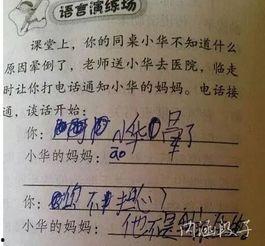 语言演练场
课堂上，你的同桌小华不知道什么
原因晕倒了，老师送小华去医院，临走
时让你打电话通知小华的妈妈。电话接
通，谈话开始：
你：小华晕了
小华的妈妈：ao
你：您不担心？
小华的妈妈：他不是
内涵段子